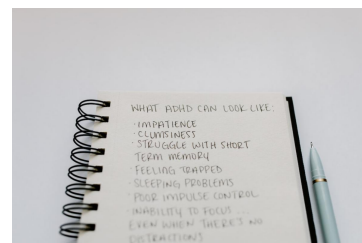 WHAT ADHD CAN LOOK LIKE:
·IMPATIENCE
·CLUMSINESS
·STRUGGLE WITH SHORT
TERM MEMORY
·FEELING TRAPPED
·SLEEPING PROBLEMS
·POOR IMPULSE CONTROL
·INABILITY TO FOCUS ...
EVEN WHEN THERE'S NO
DISTRACTIONS